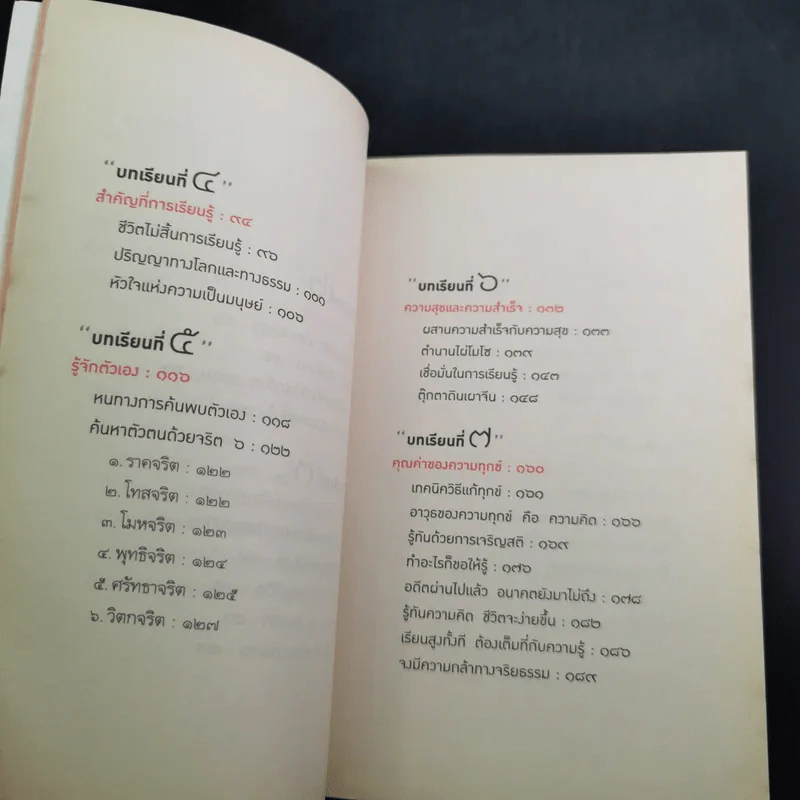 “บทเรียนที่ ๔”
สำคัญที่การเรียนรู้ : ๙๔
ชีวิตไม่สิ้นการเรียนรู้ : ๙๖
ปริญญาทางโลกและทางธรรม : ๑๐๑
หัวใจแห่งความเป็นมนุษย์ : ๑๐๖
“บทเรียนที่ ๕”
รู้จักตัวเอง : ๑๑๖
หนทางการค้นพบตัวเอง : ๑๑๘
ค้นหาตัวตนด้วยจริต ๖ : ๑๒๒
๑. ราคจริต : ๑๒๒
๒. โทสจริต : ๑๒๒
๓. โมหจริต : ๑๒๓
๔. พุทธิจริต : ๑๒๔
๕. ศรัทธาจริต : ๑๒๕
๖. วิตกจริต : ๑๒๗
“บทเรียนที่ ๖”
ความสุขและความสำเร็จ : ๑๓๒
ผสานความสำเร็จกับความสุข : ๑๓๓
ตำนานไผ่โมโซ : ๑๓๙
เชื่อมั่นในการเรียนรู้ : ๑๔๓
ตุ๊กตาดินเผาจีน : ๑๔๘
“บทเรียนที่ ๗”
คุณค่าของความทุกข์ : ๑๖๐
เทคนิควิธีแก้ทุกข์ : ๑๖๑
อาวุธของความทุกข์ คือ ความคิด : ๑๖๖
รู้ทันด้วยการเจริญสติ : ๑๖๙
ทำอะไรก็ขอให้รู้ : ๑๗๖
อดีตผ่านไปแล้ว อนาคตยังมาไม่ถึง : ๑๗๘
รู้ทันความคิด ชีวิตจะง่ายขึ้น : ๑๘๒
เรียนสูงทั้งที ต้องเต็มที่กับความรู้ : ๑๘๖
จงมีความกล้าทางจริยธรรม : ๑๘๙